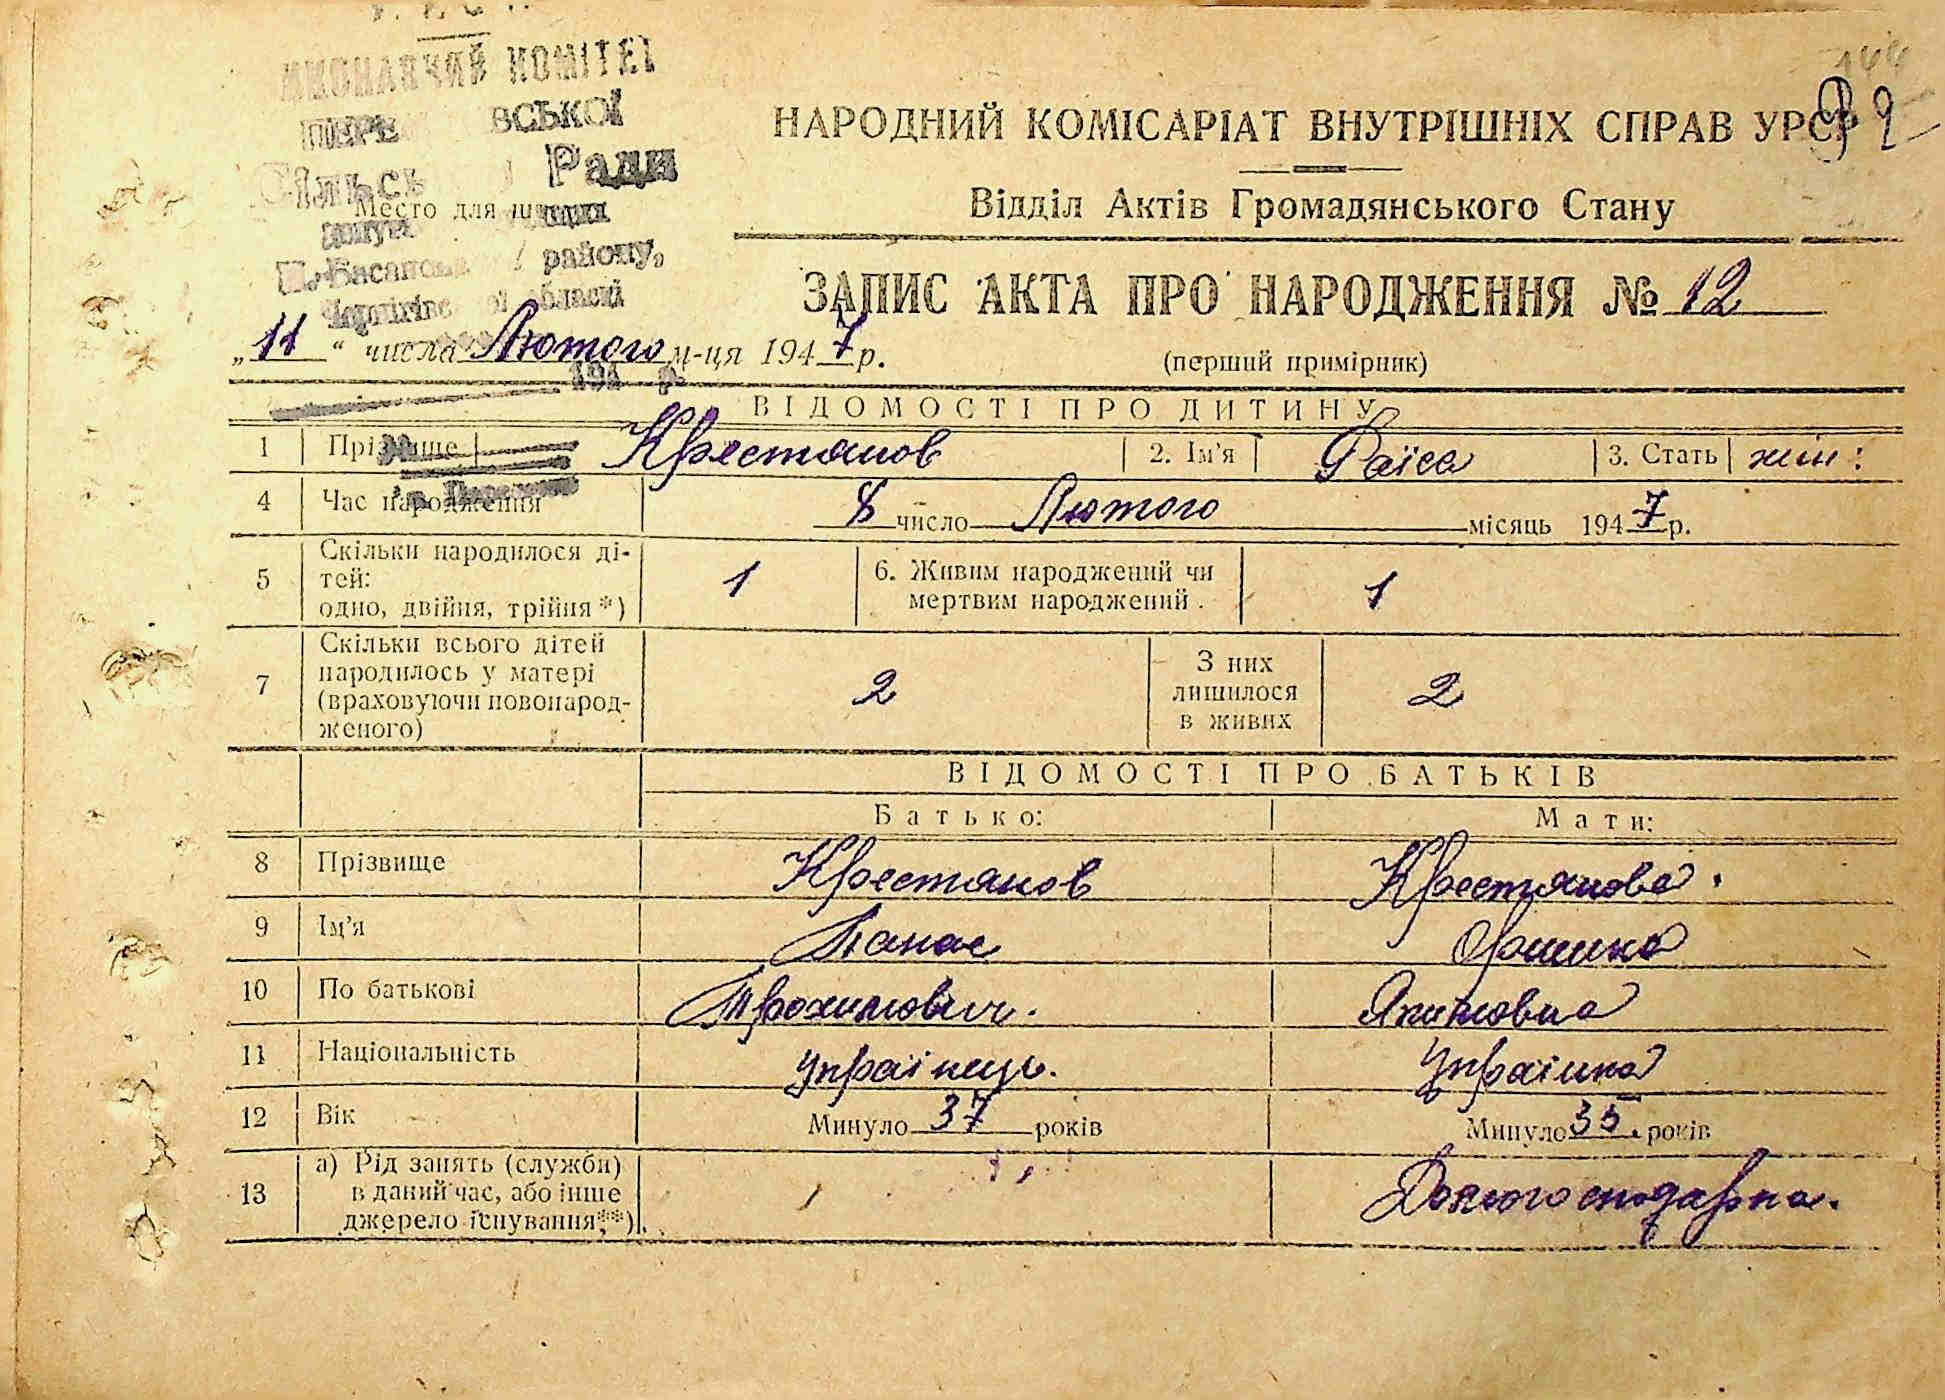 У. Р. С. Р.
ВИКОНАВЧИЙ КОМІТЕТ
ВСЬКОЇ
Ради
Место для
району,
НАРОДНИЙ КОМІСАРІАТ ВНУТРІШНІХ СПРАВ УРСР
Відділ Актів Громадянського Стану
ЗАПИС АКТА ПРО НАРОДЖЕННЯ № 12
„11“ числа Лютого м-ця 1947 р.
(перший примірник)
ВІДОМОСТІ ПРО ДИТИНУ
1 Прізвище Крестянов 2. Ім'я Раїса 3. Стать жін:
4 Час народження 8 число Лютого місяць 1947 р.
5 Скільки народилося ді-
тей:
одно, двійня, трійня*) 1 6. Живим народжений чи
мертвим народжений. 1
7 Скільки всього дітей
народилось у матері
(враховуючи новонарод-
женого) 2 З них
лишилося
в живих 2
ВІДОМОСТІ ПРО БАТЬКІВ
Батько: Мати:
8 Прізвище Крестянов Крестянова.
9 Ім'я Панас Оришка
10 По батькові Трохимович. Якимовна
11 Національність Українець. Українка
12 Вік Минуло 37 років Минуло 35 років
13 а) Рід занять (служби)
в даний час, або інше
джерело існування**) Домогосподарка.